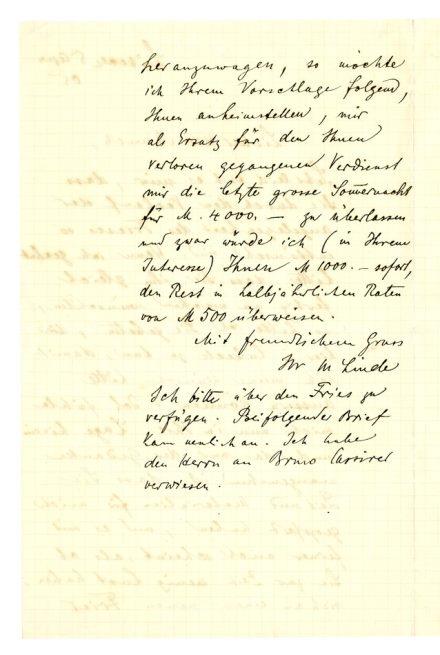 heranzuwagen, so möchte
ich Ihrem Vorschlage folgend,
Ihnen anheimstellen, mir
als Ersatz für den Ihnen
verloren gegangenen Verdienst
mir die letzte grosse Som̄ernacht
für M. 4000.— zu überlassen
und zwar würde ich (in Ihrem
Interesse) Ihnen M 1000.— sofort,
den Rest in halbjährlichen Raten
von M 500 überweisen.
Mit freundlichem Gruss
Ihr M Linde
Ich bitte über den Fries zu
verfügen. Beifolgender Brief
kam neulich an. Ich habe
den Herrn an Bruno Cassirer
verwiesen.